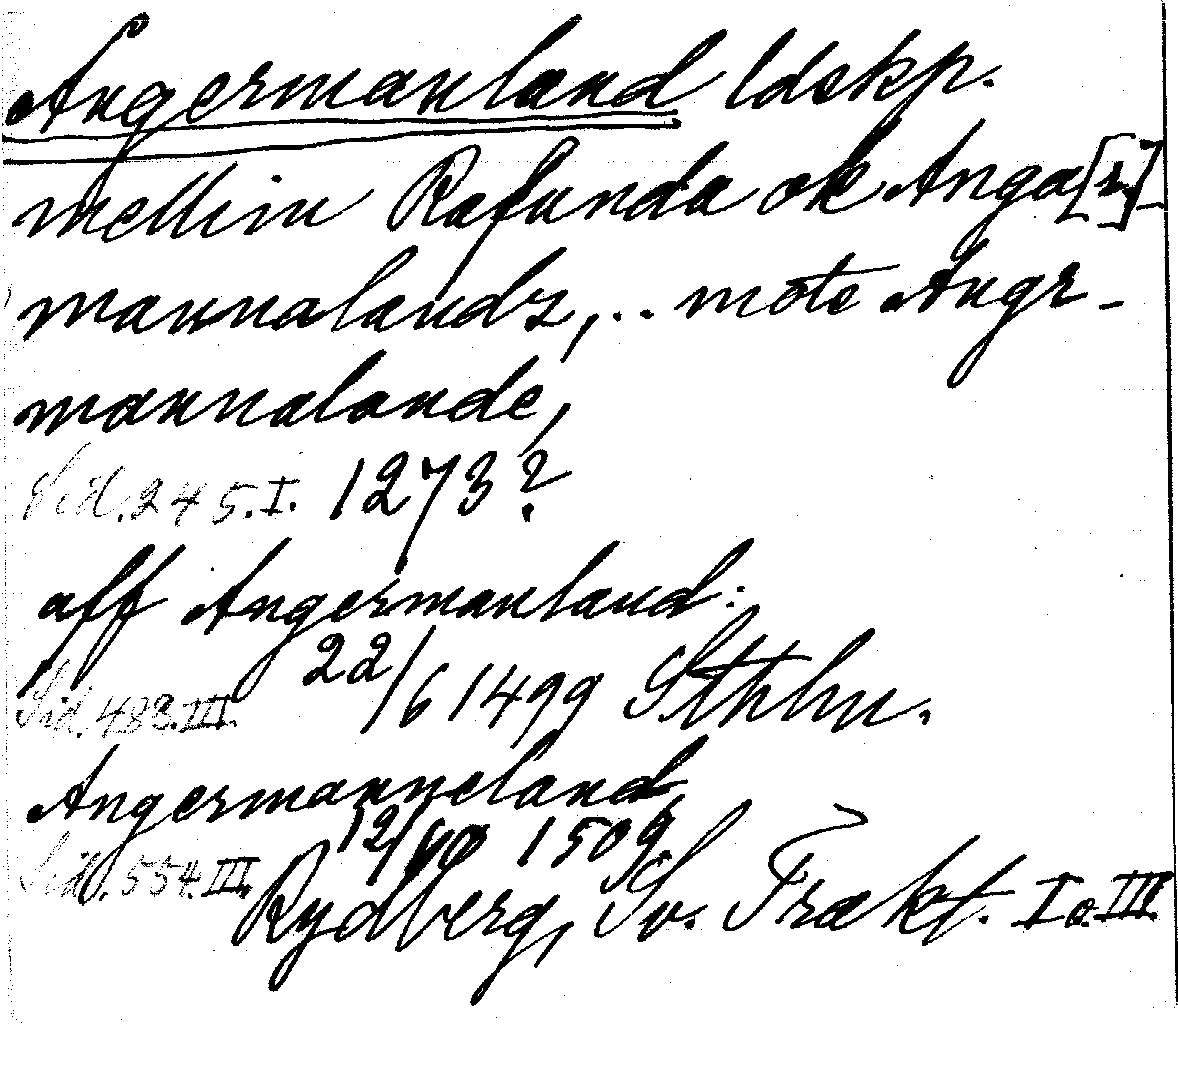 Angermanland ldskp.
mellin Rafunda ok Anga[r]
mannalandz,... mote Angr-
mannalande,
Sid. 245. I. 1273?
aff Angermanland:
Sid. 488. III. 22/6 1499 Sthlm.
Angermanneland
Sid. 554. III, 12/10 1509
Rydberg, Sv. Trakt. I o. III.